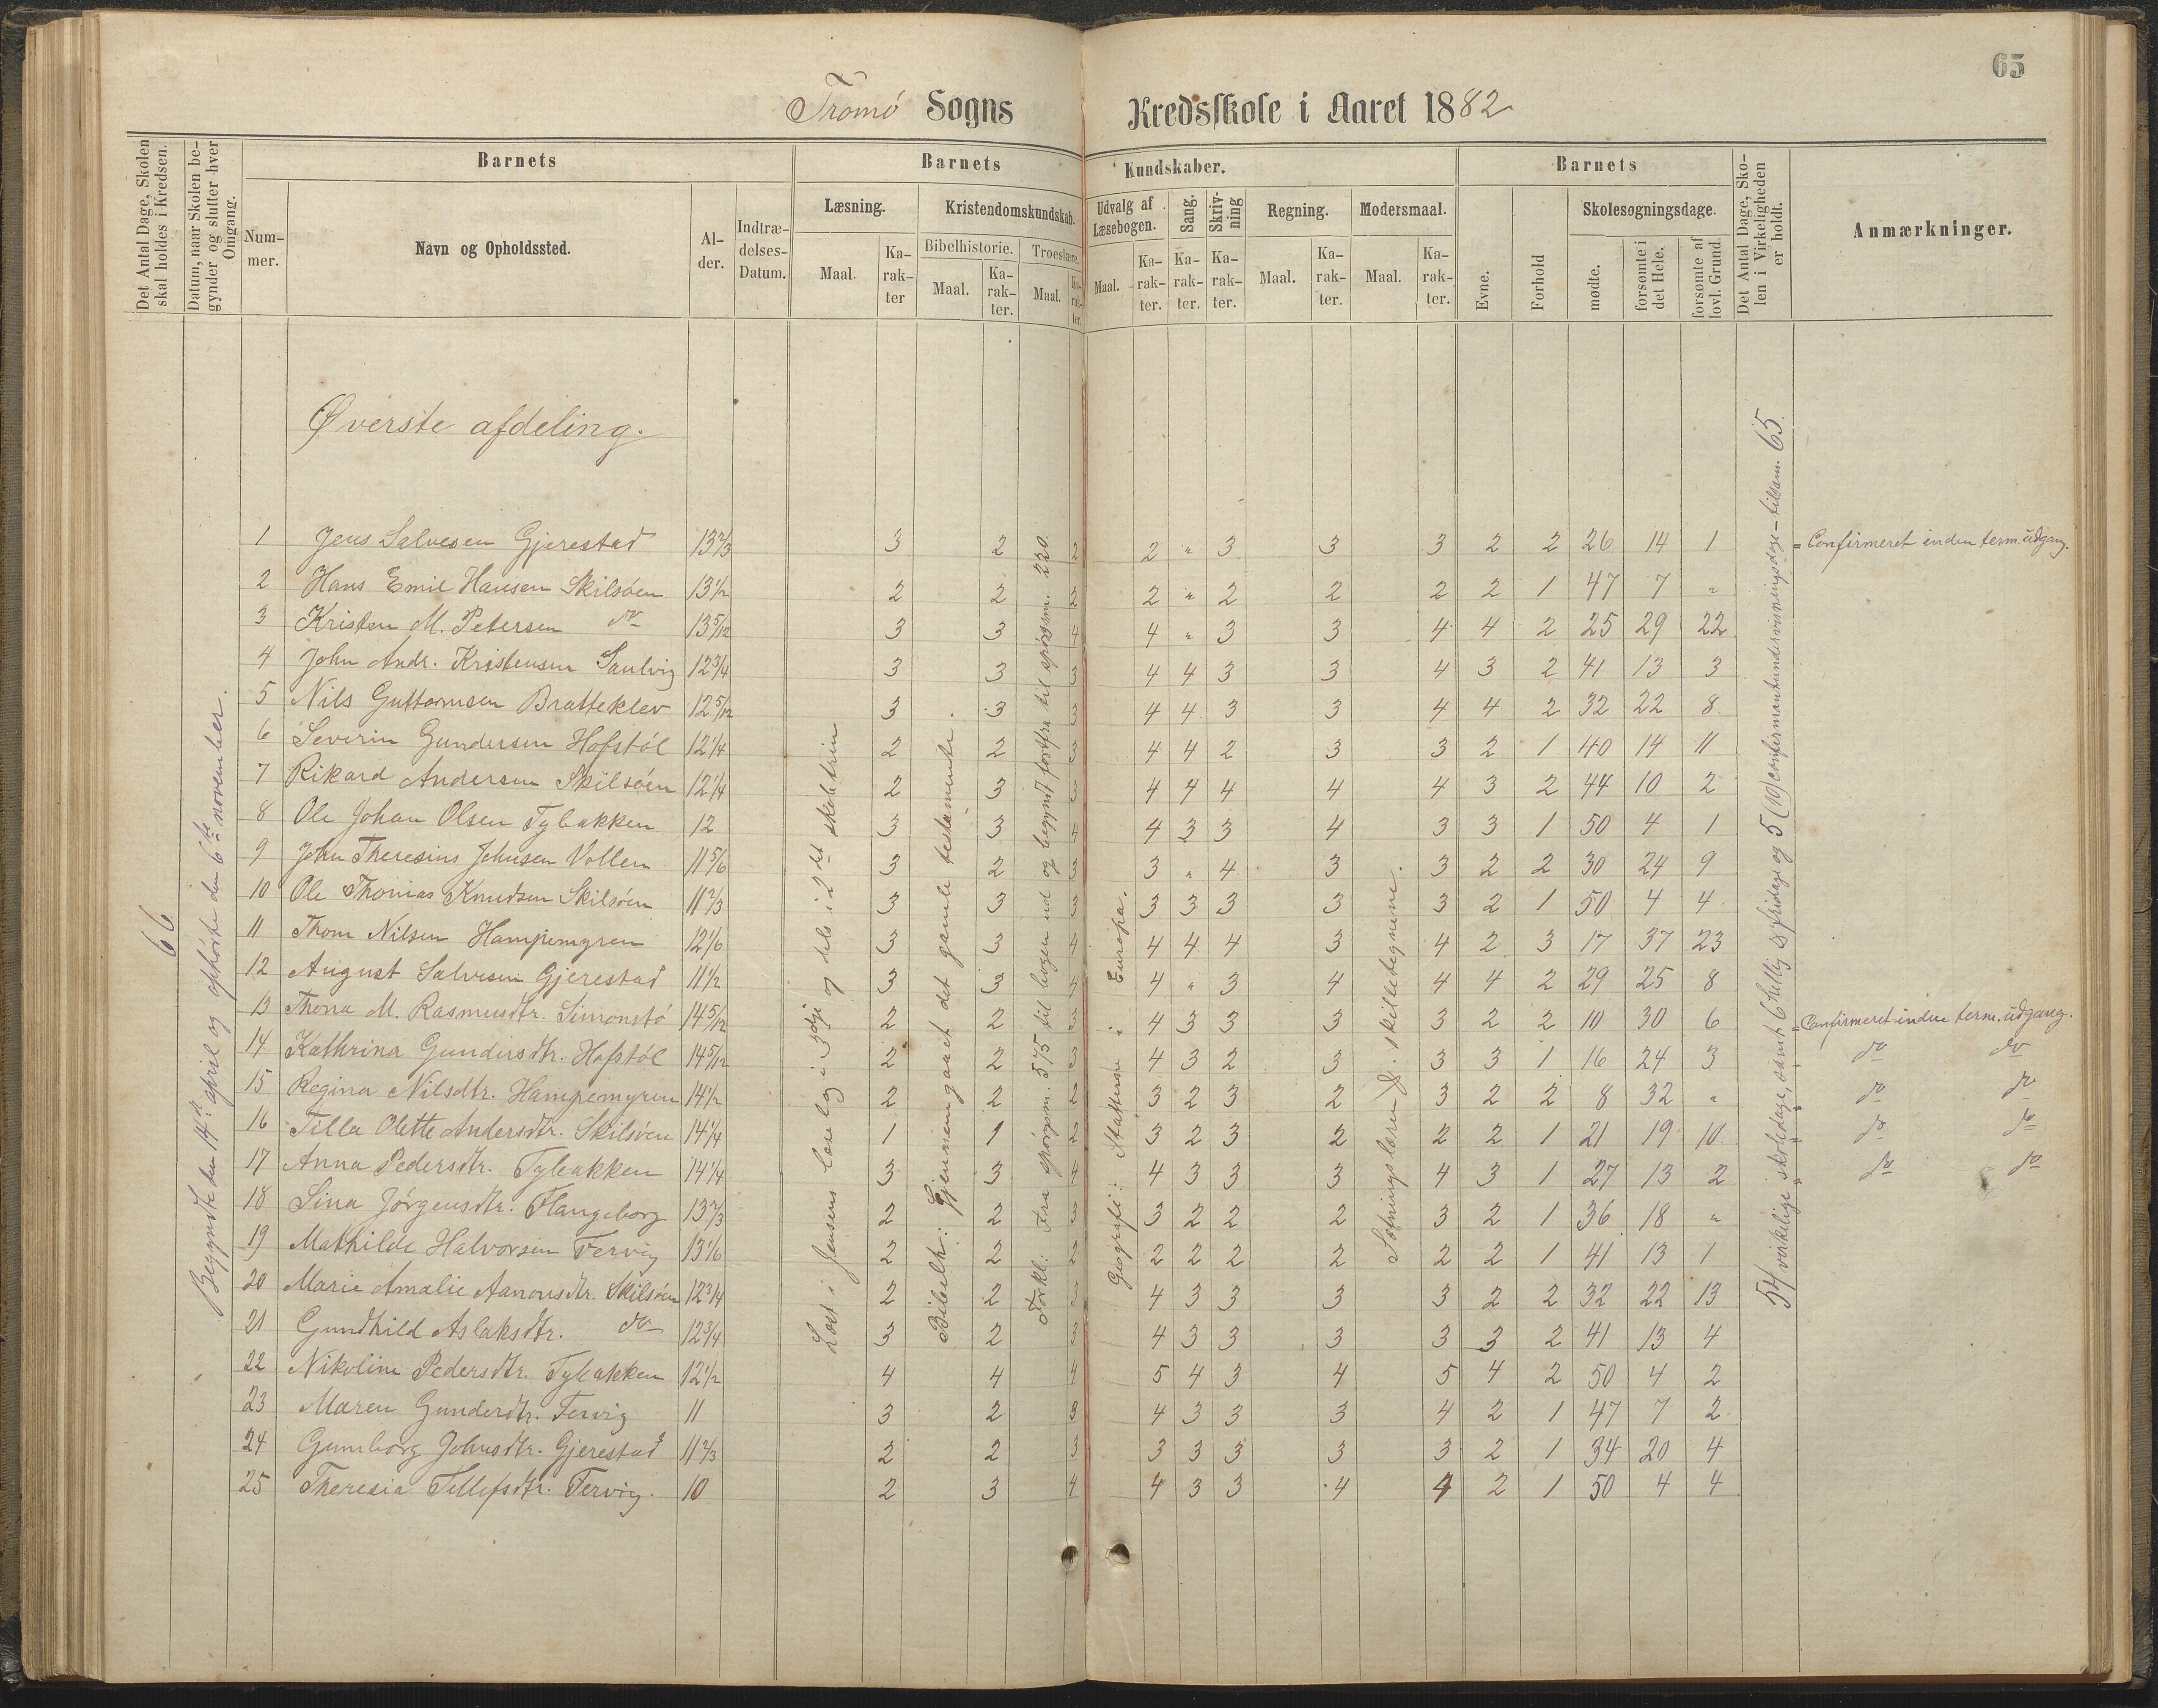 65
Tromø Sogns Kredsskole i Aaret 1882
Det Antal Dage, Skolen skal holdes i Kredsen.
Datum, naar Skolen begynder og slutter hver Omgang.
Barnets
Nummer.
Navn og Opholdssted.
Alder.
Indtrædelses-Datum.
Barnets Kundskaber.
Læsning.
Maal.
Karakter
Kristendomskundskab.
Bibelhistorie.
Maal.
Karakter.
Troeslære.
Maal.
Karakter.
Udvalg af Læsebogen.
Maal.
Karakter.
Sang.
Karakter.
Skrivning
Karakter.
Regning.
Maal.
Karakter.
Modersmaal.
Maal.
Karakter.
Barnets
Evne.
Forhold
Skolesøgningsdage.
mødte.
forsømte i det Hele.
forsømte af lovl. Grund.
Det Antal Dage, Skolen i Virkeligheden er holdt.
Anmærkninger.
Øverste afdeling.
66
Begyndte den 14de april og ophørte den 6te november.
Læst i Jensens læsebog i 3dje og dels i 2det skoletrin
Bibelh.: Gjennemgaaet det gamle testamente.
Forkl.: Fra spörgsm. 575 til bogen ud og begyndt forfra til spørsm. 220.
Geografi: Statterne i Europa.
Sætningslæren & skilletegnene.
54 virkelige skoledage, samt 6 hellig & fridage og 5 (10) confirmantundervisningsdage - tilsam. 65.
1 Jens Salvesen Gjerestad 13 2/3 3 2 2 2 " 3 3 3 2 2 26 14 1 = Confirmeret inden term. udgang.
2 Hans Emil Hansen Skilsöen 13 1/2 2 2 2 2 " 2 2 2 2 1 47 7 "
3 Kristen M. Petersen do 13 5/12 3 3 4 4 " 3 3 4 4 2 25 29 22
4 John Andr. Kristensen Sandvig 12 3/4 3 3 3 4 4 3 3 4 3 2 41 13 3
5 Nils Guttormsen Bratteklev 12 5/12 3 3 3 4 4 3 3 4 4 2 32 22 8
6 Severin Gundersen Hofstöl 12 1/4 2 2 3 4 4 2 3 3 2 1 40 14 11
7 Rikard Andersen Skilsöen 12 1/4 2 3 3 4 4 4 4 4 3 2 44 10 2
8 Ole Johan Olsen Tybakken 12 3 3 4 4 3 3 4 3 3 1 50 4 1
9 John Theresius Johnsen Vollen 11 5/6 3 2 3 3 " 4 3 3 2 2 30 24 9
10 Ole Thomas Knudsen Skilsöen 11 2/3 3 3 3 3 3 3 3 3 2 1 50 4 4
11 Thom Nilsen Hampemyren 12 1/6 3 3 4 4 4 4 3 4 2 3 17 37 23
12 August Salvesen Gjerestad 11 1/2 3 3 4 4 " 3 4 4 4 2 29 25 8
13 Thona M. Rasmusdtr. Simonstö 14 5/12 2 2 3 4 3 3 3 3 2 2 10 30 6 = Confirmeret inden term. udgang.
14 Kathrina Gundersdtr. Hofstöl 14 5/12 2 2 3 4 3 2 3 3 3 1 16 24 3 do do
15 Regina Nilsdtr. Hampemyren 14 1/2 2 2 2 3 2 3 2 3 2 2 8 32 " do do
16 Tilla Olette Andersdtr. Skilsöen 14 1/4 1 1 2 3 2 3 2 2 2 1 21 19 10 = do do
17 Anna Pedersdtr. Tybakken 14 1/4 3 3 4 4 3 3 3 4 3 1 27 13 2 " do do
18 Sina Jörgensdtr. Flangeborg 13 2/3 2 2 3 3 2 2 2 3 2 1 36 18 "
19 Mathilde Halvorsen Fervig 13 1/6 2 2 2 2 2 2 2 2 2 1 41 13 1
20 Marie Amalie Aanonsdtr. Skilsöen 12 3/4 2 2 3 4 3 3 3 3 2 2 32 22 13
21 Gundhild Aslaksdtr. do 12 3/4 3 2 3 4 3 3 3 3 3 2 41 13 4
22 Nikoline Pedersdtr. Tybakken 12 1/2 4 4 4 5 4 3 4 5 4 2 50 4 2
23 Maren Gunderdtr. Fervig 11 3 2 3 4 3 3 3 4 2 1 47 7 2
24 Gunborg Johnsdtr. Gjerestad 11 2/3 2 2 3 3 3 3 3 3 2 1 34 20 4
25 Theresia Tellefsdtr. Fervig. 10 2 3 4 4 3 3 4 4 2 1 50 4 4